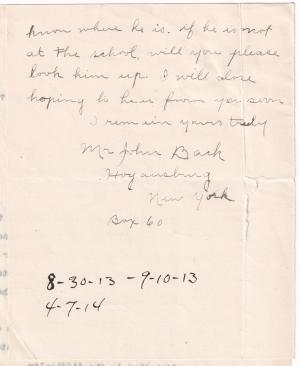 know where he is. if he is not
at the school, will you please
look him up. I will close
hoping to hear from you soon
I remain yours truly
Mr John Back
Hogansburg
New York
Box 60
8-30-13 - 9-10-13
4-7-14